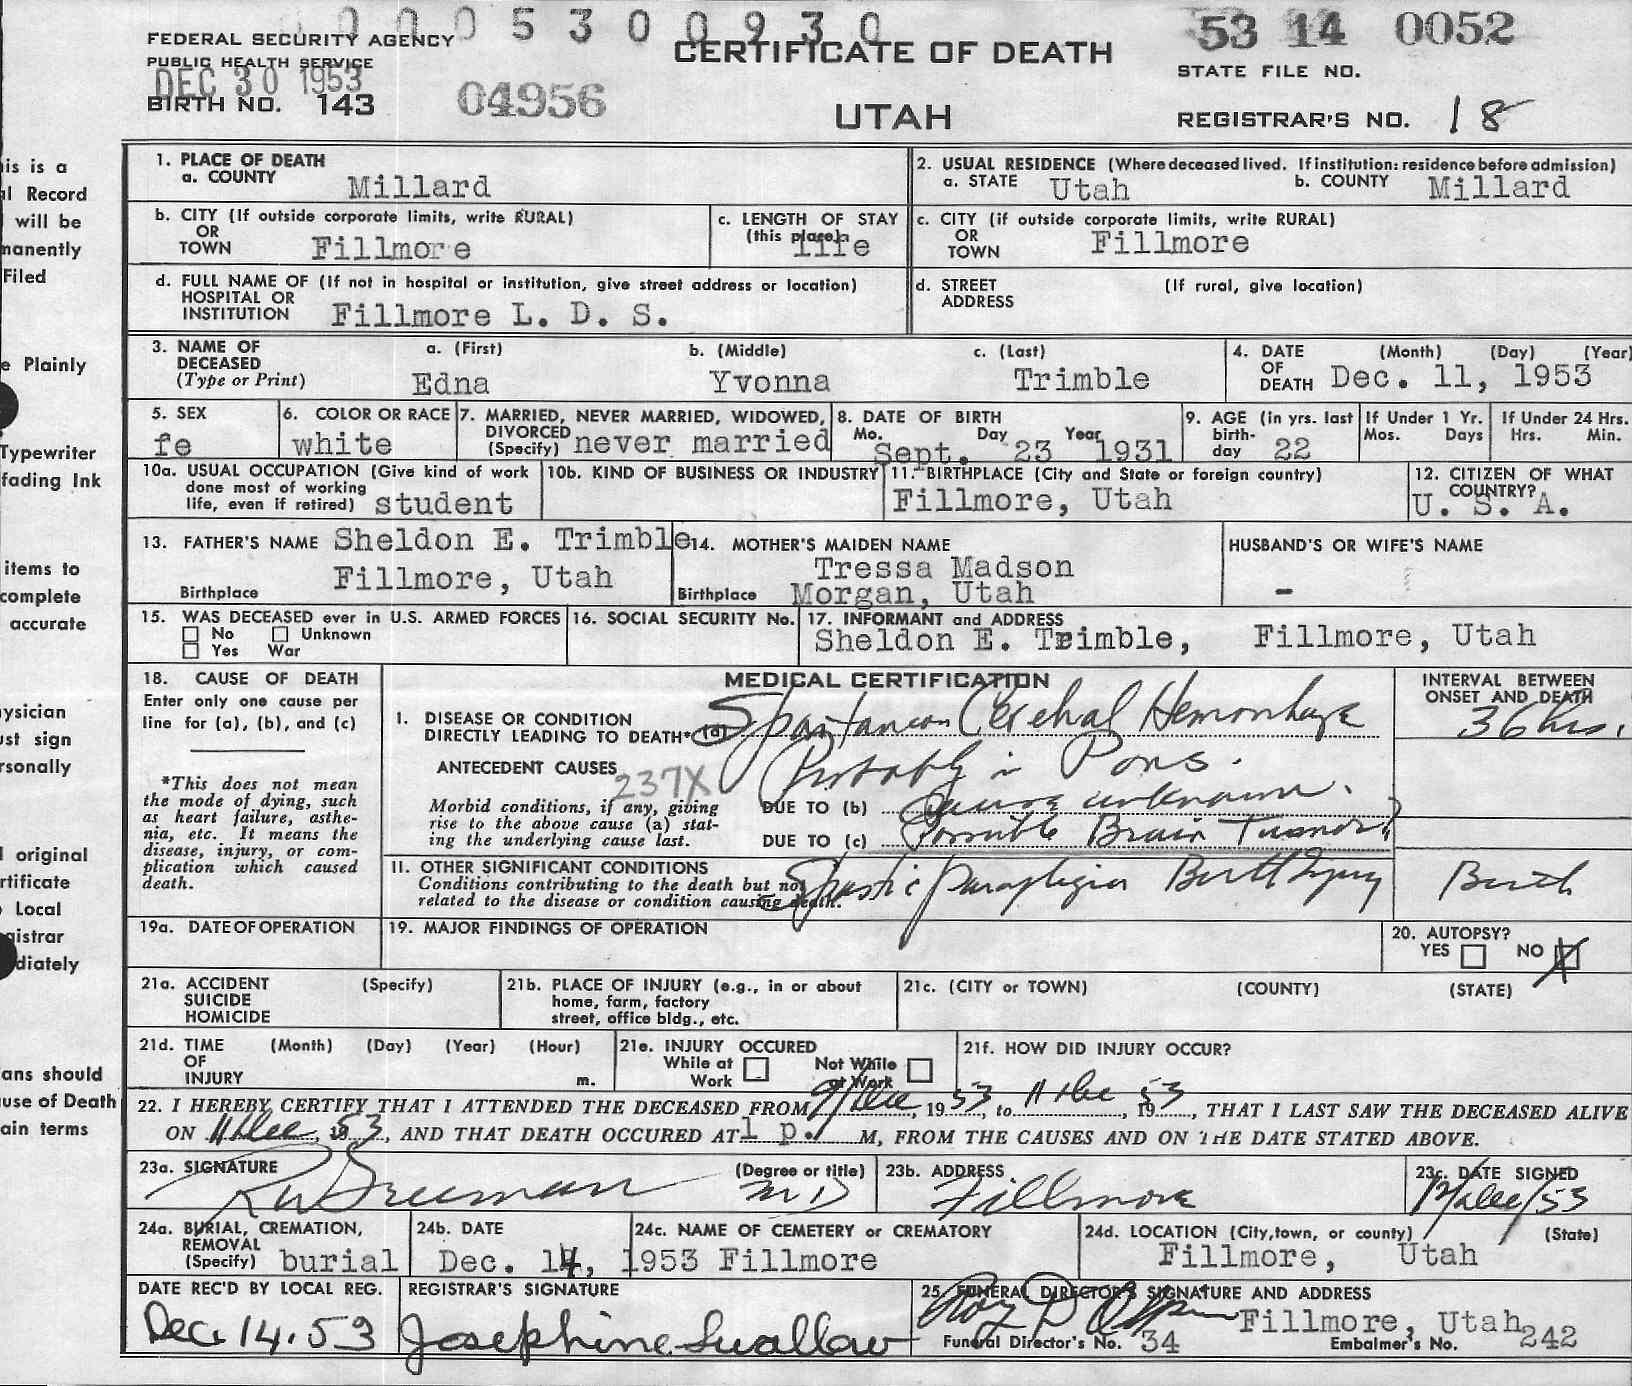 0 0 0 0 5 3 0 0 9 3 0
53 14 0052
FEDERAL SECURITY AGENCY
PUBLIC HEALTH SERVICE
DEC 30 1953
BIRTH NO. 143
04956
CERTIFICATE OF DEATH
UTAH
STATE FILE NO.
REGISTRAR'S NO. 18
is is a
l Record
will be
manently
Filed
e Plainly
Typewriter
fading Ink
items to
complete
accurate
ysician
ust sign
rsonally
l original
rtificate
Local
gistrar
diately
ans should
use of Death
ain terms
1. PLACE OF DEATH
a. COUNTY Millard
2. USUAL RESIDENCE (Where deceased lived. If institution: residence before admission)
a. STATE Utah b. COUNTY Millard
b. CITY (If outside corporate limits, write RURAL)
OR
TOWN Fillmore
c. LENGTH OF STAY
(this place)
life
c. CITY (if outside corporate limits, write RURAL)
OR
TOWN Fillmore
d. FULL NAME OF (If not in hospital or institution, give street address or location)
HOSPITAL OR
INSTITUTION Fillmore L. D. S.
d. STREET (If rural, give location)
ADDRESS
3. NAME OF
DECEASED
(Type or Print)
a. (First) b. (Middle) c. (Last)
Edna Yvonna Trimble
4. DATE (Month) (Day) (Year)
OF
DEATH Dec. 11, 1953
5. SEX
fe
6. COLOR OR RACE
white
7. MARRIED, NEVER MARRIED, WIDOWED,
DIVORCED
(Specify) never married
8. DATE OF BIRTH
Mo. Day Year
Sept. 23 1931
9. AGE (in yrs. last
birth-
day 22
If Under 1 Yr.
Mos. Days
If Under 24 Hrs.
Hrs. Min.
10a. USUAL OCCUPATION (Give kind of work
done most of working
life, even if retired) student
10b. KIND OF BUSINESS OR INDUSTRY
11. BIRTHPLACE (City and State or foreign country)
Fillmore, Utah
12. CITIZEN OF WHAT
COUNTRY?
U. S. A.
13. FATHER'S NAME Sheldon E. Trimble
Birthplace Fillmore, Utah
14. MOTHER'S MAIDEN NAME
Tressa Madson
Birthplace Morgan, Utah
HUSBAND'S OR WIFE'S NAME
-
15. WAS DECEASED ever in U.S. ARMED FORCES
No Unknown
Yes War
16. SOCIAL SECURITY No.
17. INFORMANT and ADDRESS
Sheldon E. Trimble, Fillmore, Utah
18. CAUSE OF DEATH
Enter only one cause per
line for (a), (b), and (c)
*This does not mean
the mode of dying, such
as heart failure, asthe-
nia, etc. It means the
disease, injury, or com-
plication which caused
death.
MEDICAL CERTIFICATION
I. DISEASE OR CONDITION
DIRECTLY LEADING TO DEATH* (a) Spontaneous Cerebral Hemorrhage
Probably in Pons.
ANTECEDENT CAUSES
237X
Morbid conditions, if any, giving
rise to the above cause (a) stat-
ing the underlying cause last.
DUE TO (b) Cause unknown.
DUE TO (c) Possible Brain Tumor?
INTERVAL BETWEEN
ONSET AND DEATH
36 hrs.
II. OTHER SIGNIFICANT CONDITIONS
Conditions contributing to the death but not
related to the disease or condition causing death.
Spastic Paraplegia Birth Injury
Birth
19a. DATE OF OPERATION
19. MAJOR FINDINGS OF OPERATION
20. AUTOPSY?
YES NO X
21a. ACCIDENT (Specify)
SUICIDE
HOMICIDE
21b. PLACE OF INJURY (e.g., in or about
home, farm, factory
street, office bldg., etc.
21c. (CITY or TOWN) (COUNTY) (STATE)
21d. TIME (Month) (Day) (Year) (Hour)
OF
INJURY m.
21e. INJURY OCCURED
While at Not While
Work at Work
21f. HOW DID INJURY OCCUR?
22. I HEREBY CERTIFY THAT I ATTENDED THE DECEASED FROM 9/Dec, 1953, to 11 Dec, 1953, THAT I LAST SAW THE DECEASED ALIVE
ON 11 Dec, 1953, AND THAT DEATH OCCURED AT 1 p. M, FROM THE CAUSES AND ON THE DATE STATED ABOVE.
23a. SIGNATURE (Degree or title)
MD
23b. ADDRESS
Fillmore
23c. DATE SIGNED
12/Dec/53
24a. BURIAL, CREMATION,
REMOVAL
(Specify) burial
24b. DATE
Dec. 14, 1953
24c. NAME OF CEMETERY or CREMATORY
Fillmore
24d. LOCATION (City, town, or county) (State)
Fillmore, Utah
DATE REC'D BY LOCAL REG.
Dec. 14. 53
REGISTRAR'S SIGNATURE
Josephine Swallow
25. FUNERAL DIRECTOR'S SIGNATURE AND ADDRESS
Fillmore, Utah
Funeral Director's No. 34 Embalmer's No. 242